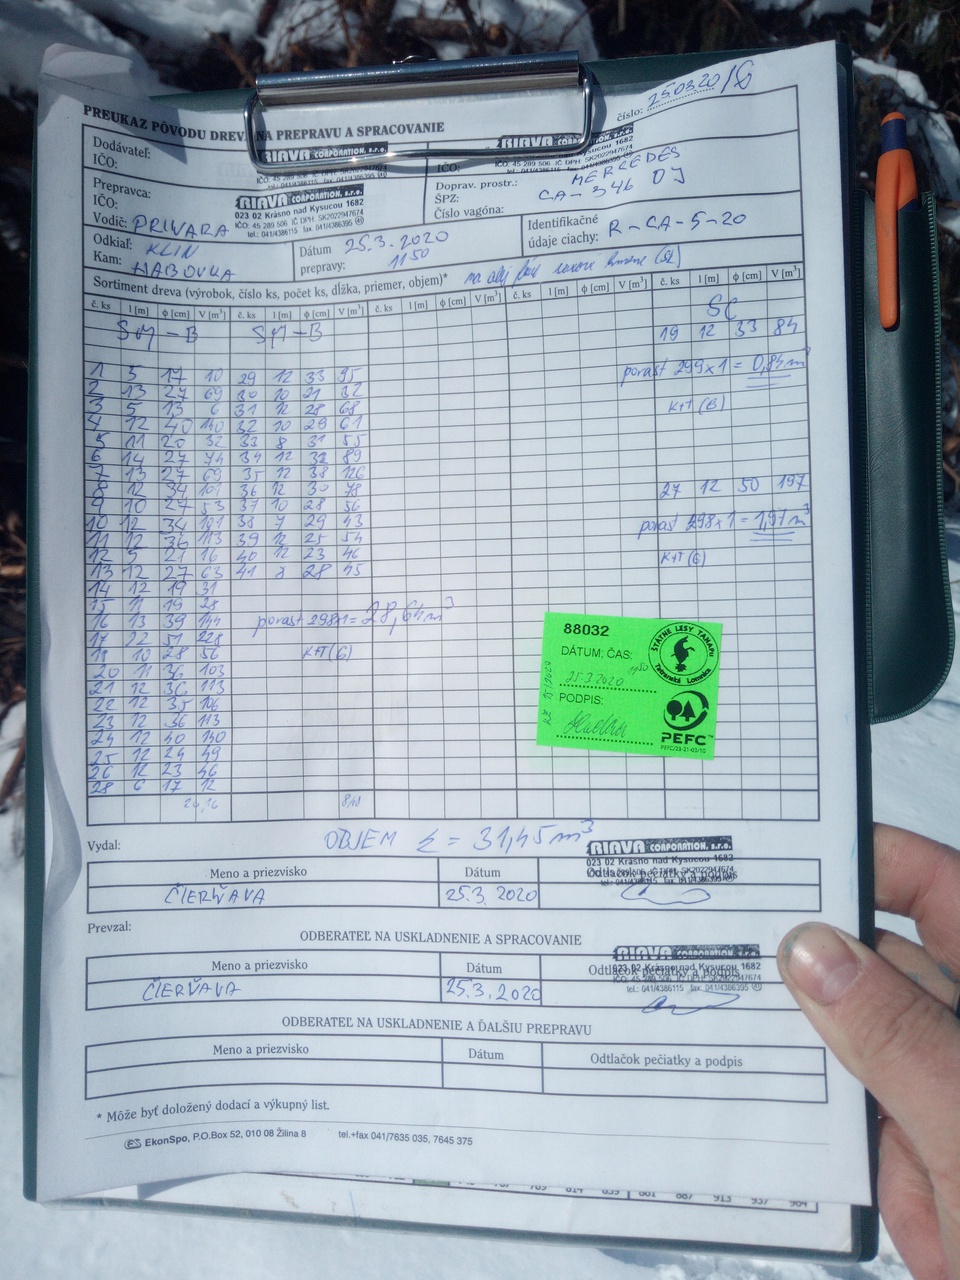 číslo: 25.03.20/G
PREUKAZ PÔVODU DREVA NA PREPRAVU A SPRACOVANIE
Dodávateľ: RIAVA CORPORATION, s.r.o.
IČO: IČO: 45 289 506 IČ DPH: SK2022947674
RIAVA CORPORATION, s.r.o.
IČO: IČO: 45 289 506 IČ DPH: SK2022947674
Prepravca: RIAVA CORPORATION, s.r.o.
IČO: 023 02 Krásno nad Kysucou 1682
IČO: 45 289 506 IČ DPH: SK2022947674
tel.: 041/4386115 fax: 041/4386395
Vodič: PRIVARA
Doprav. prostr.: MERCEDES
ŠPZ: CA-346 DJ
Číslo vagóna:
Odkiaľ: KLIN
Kam: HABOVKA
Dátum prepravy: 25.3.2020
11 50
Identifikačné údaje ciachy: R-CA-5-20
Sortiment dreva (výrobok, číslo ks, počet ks, dĺžka, priemer, objem)*
č. ks l [m] φ [cm] V [m³] č. ks l [m] φ [cm] V [m³] č. ks l [m] φ [cm] V [m³] č. ks l [m] φ [cm] V [m³] č. ks l [m] φ [cm] V [m³]
SM-B SM-B SC
19 12 33 84
porast 299x1 = 0,84 m³
K+T (B)
1 5 17 10 29 12 33 95
2 13 27 69 30 10 21 32
3 5 13 6 31 12 28 68
4 12 40 140 32 10 29 61
5 11 20 32 33 8 31 55
6 14 27 74 34 12 32 89
7 13 27 69 35 12 38 126
8 12 34 101 36 12 30 78
27 12 50 197
9 10 27 53 37 10 28 56
10 12 34 101 38 7 29 43
porast 298x1 = 1,97 m³
11 12 36 113 39 12 25 54
12 5 21 16 40 12 23 46
K+T (G)
13 12 27 63 41 8 28 45
14 12 19 31
15 11 19 28
16 13 39 144
porast 298x1 = 28,64 m³
17 22 51 228
18 10 28 56
K+T (G)
20 11 36 103
21 12 36 113
22 12 35 106
23 12 36 113
24 12 40 140
25 12 24 49
26 12 23 46
28 6 17 12
20,16 8,48
88032
DÁTUM, ČAS:
25.3.2020 1150
PODPIS:
ŠTÁTNE LESY TANAPu
Tatranská Lomnica
PEFC
PEFC/23-21-03/10
OBJEM Σ = 31,45 m³
Vydal:
RIAVA CORPORATION, s.r.o.
023 02 Krásno nad Kysucou 1682
Meno a priezvisko Dátum Odtlačok pečiatky a podpis
ČIERŇAVA 25.3.2020
Prevzal:
ODBERATEĽ NA USKLADNENIE A SPRACOVANIE
RIAVA CORPORATION, s.r.o.
023 02 Krásno nad Kysucou 1682
Meno a priezvisko Dátum Odtlačok pečiatky a podpis
IČO: 45 289 506 IČ DPH: SK2022947674
tel.: 041/4386115 fax: 041/4386395
ČIERŇAVA 25.3.2020
ODBERATEĽ NA USKLADNENIE A ĎALŠIU PREPRAVU
Meno a priezvisko Dátum Odtlačok pečiatky a podpis
* Môže byť doložený dodací a výkupný list.
ES EkonSpo, P.O.Box 52, 010 08 Žilina 8 tel.+fax 041/7635 035, 7645 375